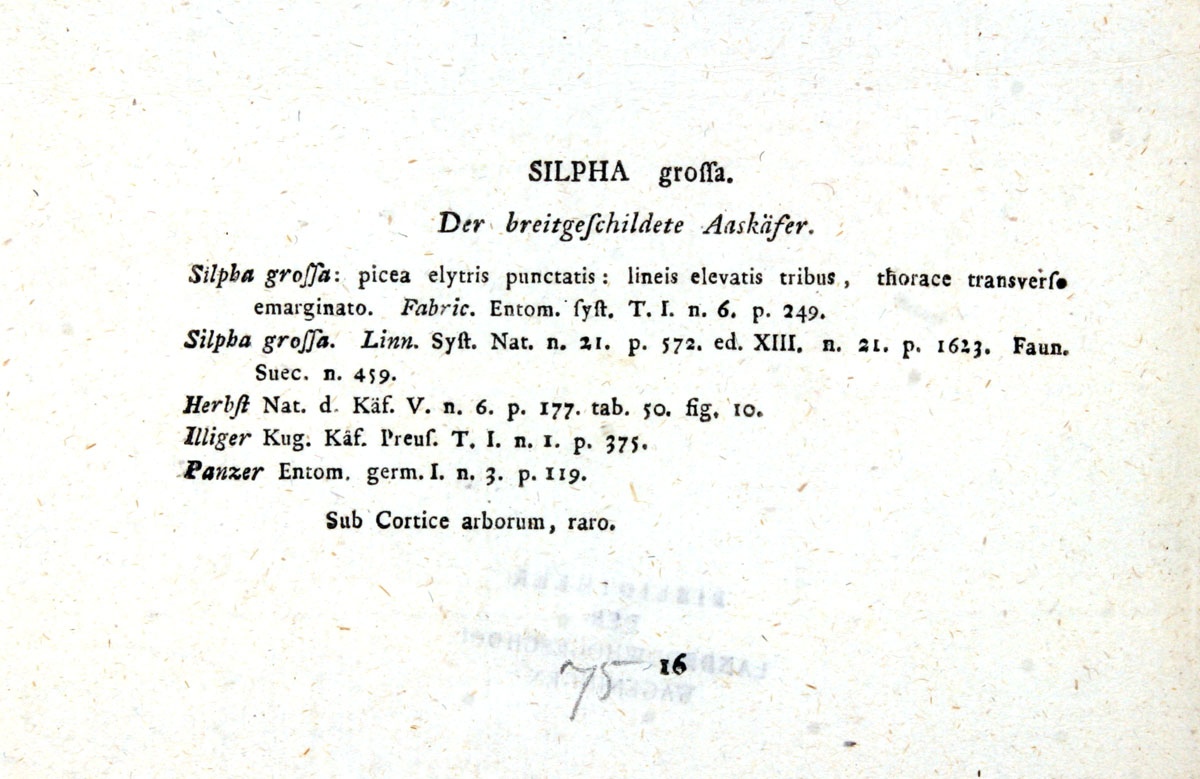 SILPHA groſſa.
Der breitgeſchildete Aaskäfer.
Silpha groſſa: picea elytris punctatis: lineis elevatis tribus, thorace transverſo
emarginato. Fabric. Entom. ſyſt. T. I. n. 6. p. 249.
Silpha groſſa. Linn. Syſt. Nat. n. 21. p. 572. ed. XIII. n. 21. p. 1623. Faun.
Suec. n. 459.
Herbſt Nat. d. Käf. V. n. 6. p. 177. tab. 50. fig. 10.
Illiger Kug. Käf. Preuſ. T. I. n. 1. p. 375.
Panzer Entom. germ. I. n. 3. p. 119.
Sub Cortice arborum, raro.
75 16